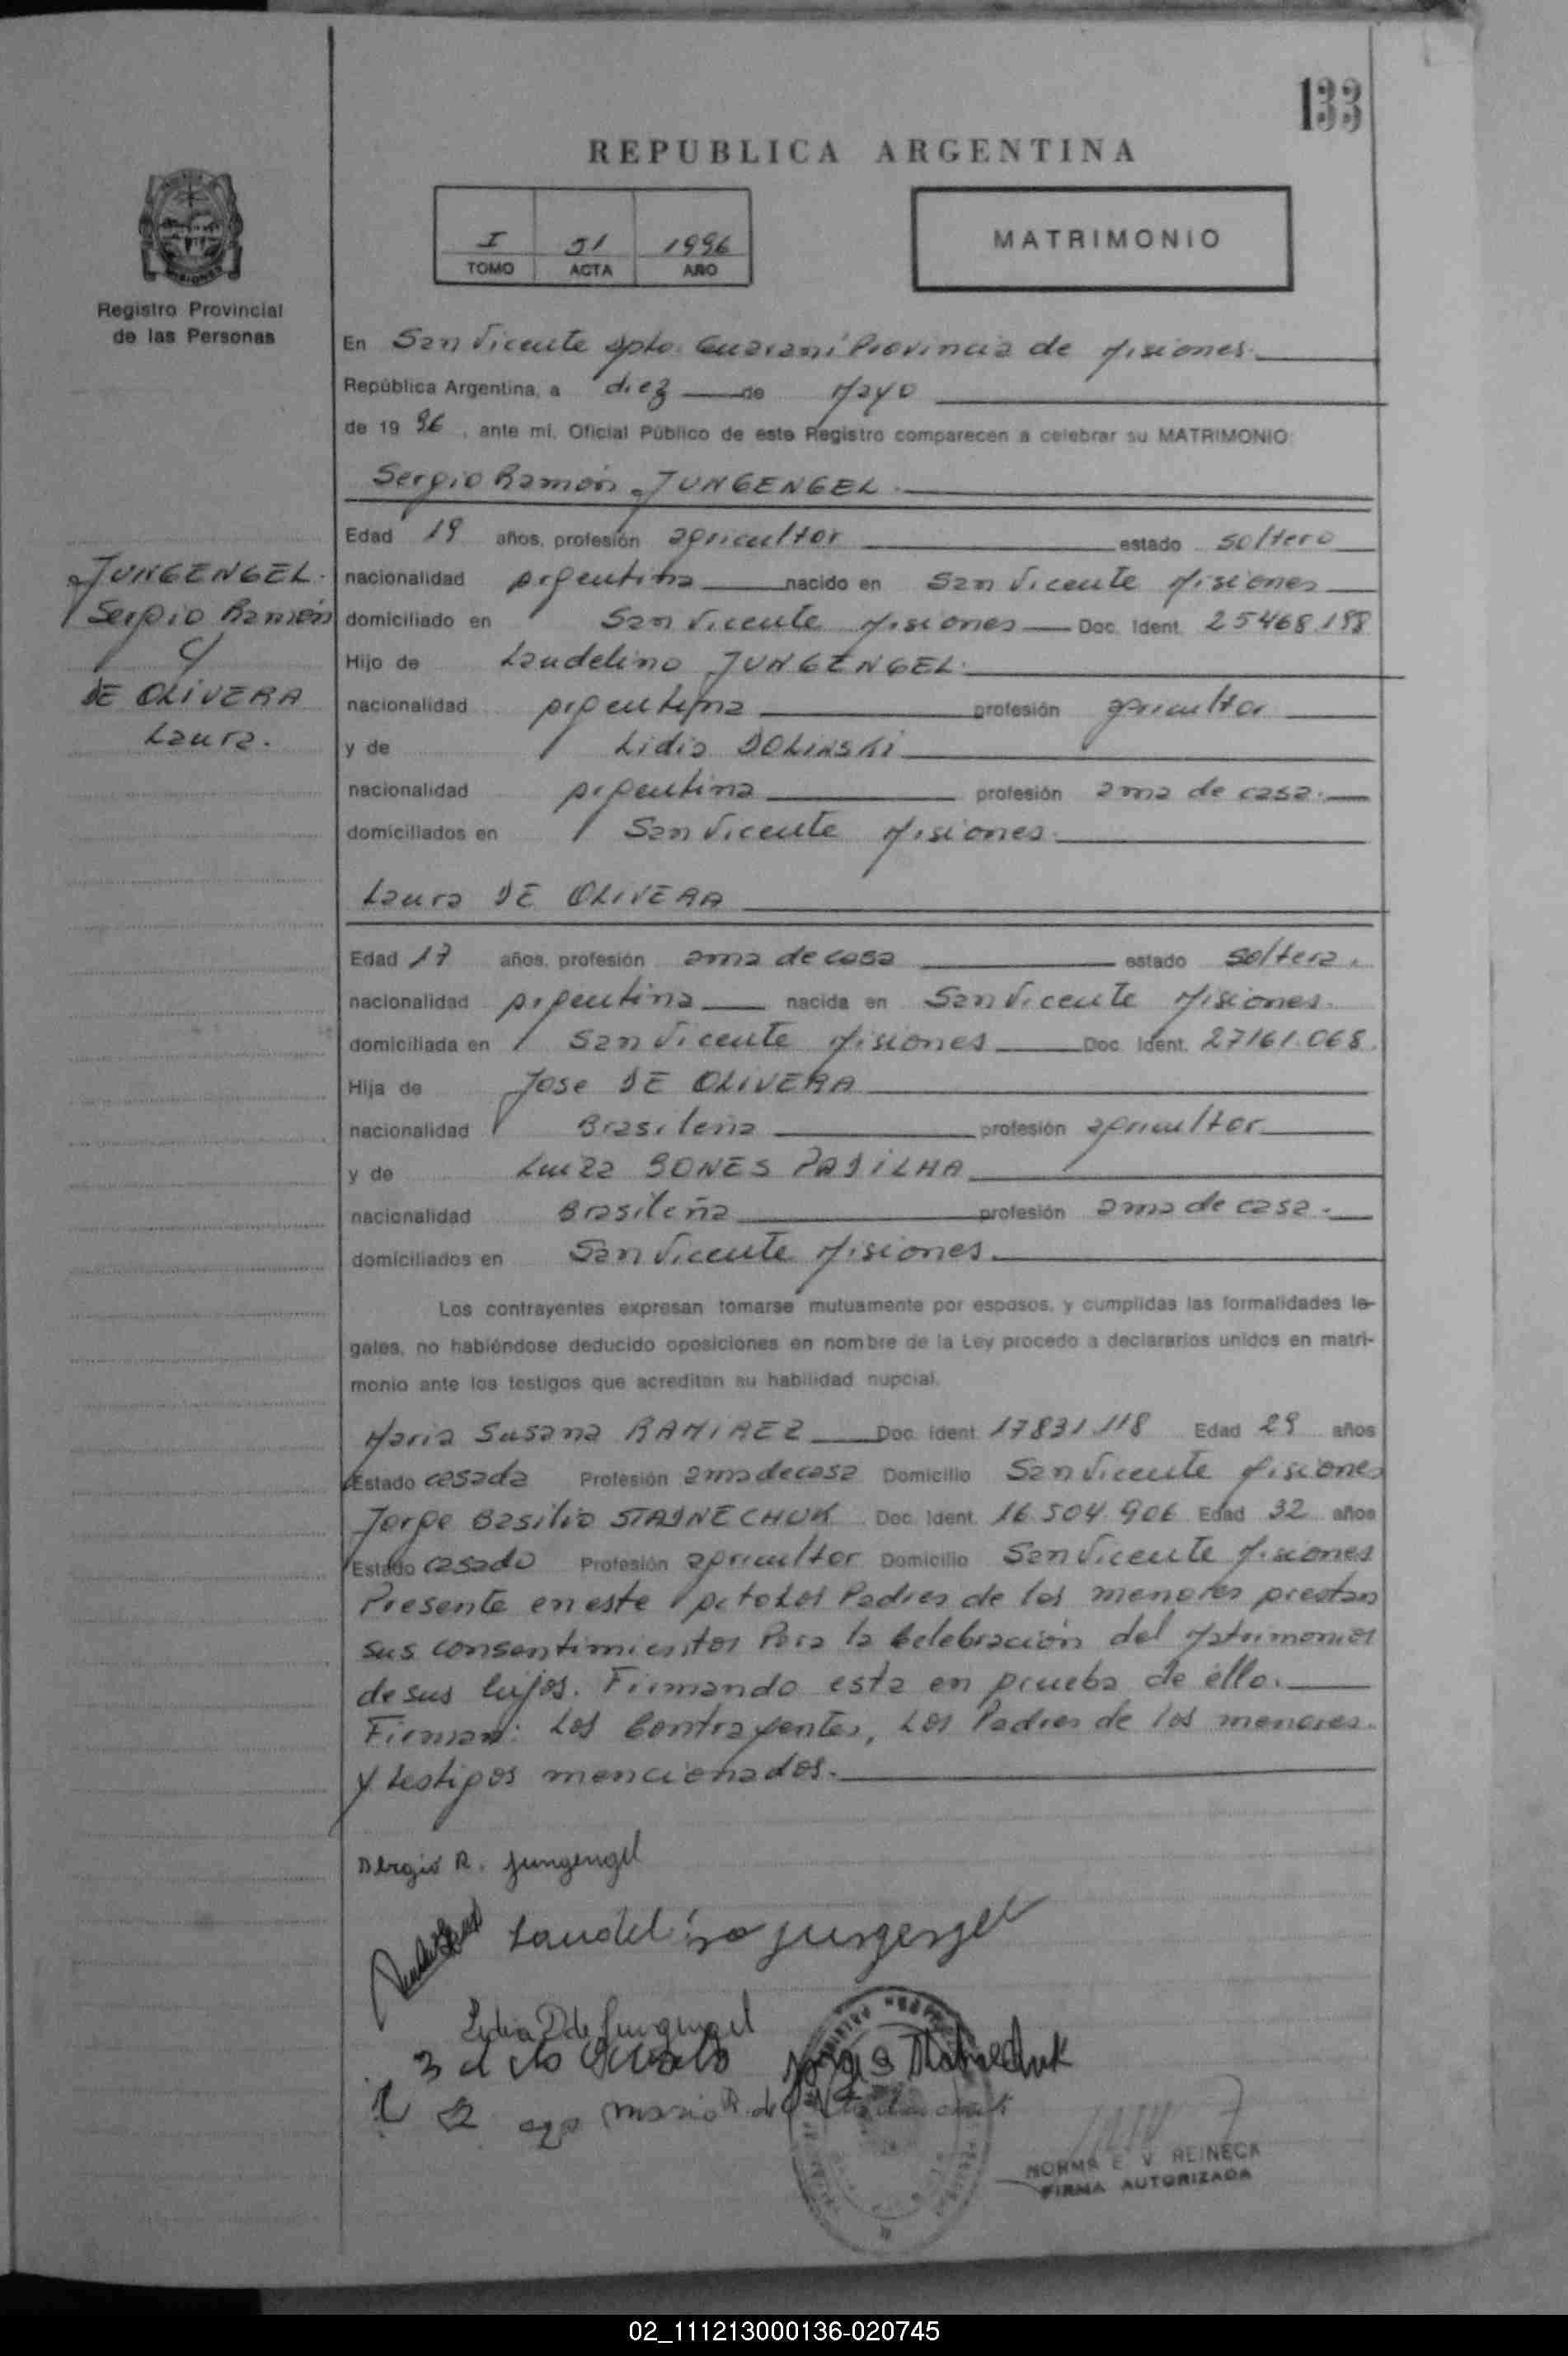 133
REPUBLICA ARGENTINA
I 51 1996
TOMO ACTA AÑO
MATRIMONIO
Registro Provincial
de las Personas
En San Vicente Dpto. Guaraní Provincia de Misiones.
República Argentina, a diez de Mayo
de 19 96, ante mí, Oficial Público de este Registro comparecen a celebrar su MATRIMONIO:
Sergio Ramón JUNGENGEL.
Edad 19 años, profesión agricultor estado soltero
nacionalidad Argentina nacido en San Vicente Misiones
domiciliado en San Vicente Misiones Doc. Ident. 25468.188
Hijo de Laudelino JUNGENGEL.
nacionalidad Argentina profesión agricultor
y de Lidia DOLINSKI
nacionalidad Argentina profesión ama de casa.
domiciliados en San Vicente Misiones.
JUNGENGEL.
Sergio Ramón
c/
DE OLIVERA
Laura.
Laura DE OLIVERA
Edad 17 años, profesión ama de casa estado soltera.
nacionalidad Argentina nacida en San Vicente Misiones.
domiciliada en San Vicente Misiones Doc. Ident. 27161.068.
Hija de Jose DE OLIVERA
nacionalidad Brasileña profesión agricultor
y de Luiza GONES PADILHA
nacionalidad Brasileña profesión ama de casa.
domiciliados en San Vicente Misiones.
Los contrayentes expresan tomarse mutuamente por esposos, y cumplidas las formalidades le-
gales, no habiéndose deducido oposiciones en nombre de la Ley procedo a declararlos unidos en matri-
monio ante los testigos que acreditan su habilidad nupcial.
Maria Susana RAMIREZ Doc. Ident. 17831.118 Edad 29 años
Estado casada Profesión ama de casa Domicilio San Vicente Misiones
Jorge Basilio STADNECHUK Doc. Ident. 16.504.906 Edad 32 años
Estado casado Profesión agricultor Domicilio San Vicente Misiones
Presente en este Acto Los Padres de los menores prestan
sus consentimientos Para la Celebración del Matrimonios
de sus hijos. Firmando esta en prueba de ello.
Firman: Los Contrayentes, Los Padres de los menores.
y testigos mencionados.
Sergio R. Jungengel
Laudelino Jungengel
Lidia D de Jungengel
NORMA E. V. REINECK
FIRMA AUTORIZADA
02_111213000136-020745